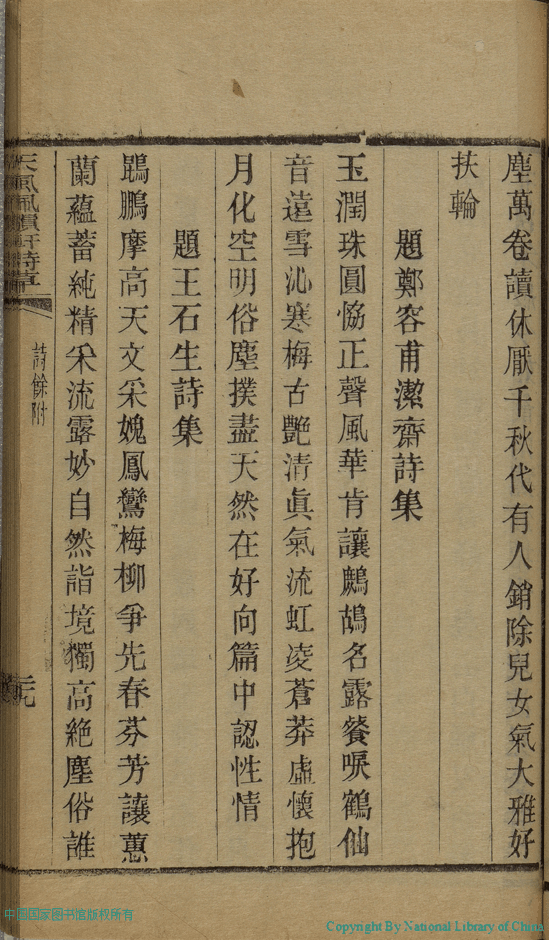 塵萬卷讀休厭千秋代有人銷除兒女氣大雅好
扶輪
題鄭容甫潔齋詩集
玉潤珠圓恊正聲風華肯讓鷓鴣名露餐唳鶴仙
音遠雪沁寒梅古艷清眞氣流虹凌蒼莽虛懷抱
月化空明俗塵撲盡天然在好向篇中認性情
題王石生詩集
鵾鵬摩高天文采媿鳳鸞梅柳爭先春芬芳讓蕙
蘭蘊蓄純精采流露妙自然詣境獨高絶塵俗誰
詩餘附
中国国家图书馆版权所有
Copyright By National Library of China